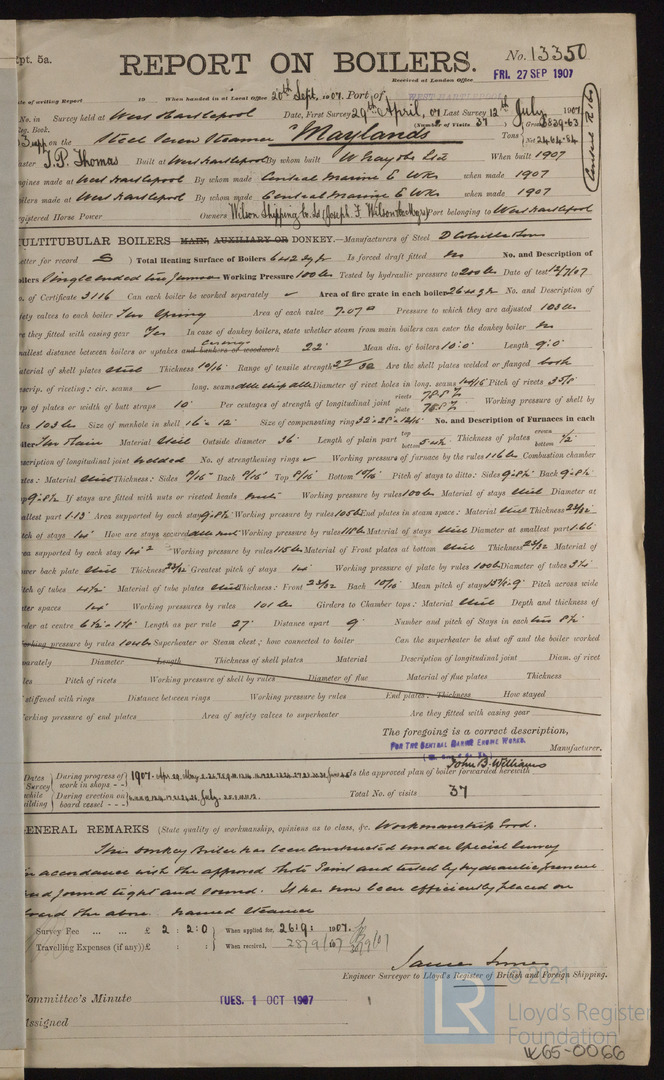 Rpt. 5a.
REPORT ON BOILERS.
No. 13350
Received at London Office
FRI. 27 SEP 1907
Date of writing Report 19 When handed in at Local Office 20th Sept. 1907. Port of WEST HARTLEPOOL
No. in Survey held at West Hartlepool Date, First Survey 29th April, 07 Last Survey 12th July, 1907
Reg. Book. (Number of Visits 37)
on the Steel Screw Steamer "Maylands" Gross 3829.63
Tons Net 2464.84
Master J. P. Thomas Built at West Hartlepool By whom built W Gray & Co Ltd When built 1907
Engines made at West Hartlepool By whom made Central Marine E. Wks when made 1907
Boilers made at West Hartlepool By whom made Central Marine E Wks when made 1907
Registered Horse Power Owners Wilson Shipping Co Ld (Joseph F. Wilson & Co Mgrs) Port belonging to West Hartlepool
MULTITUBULAR BOILERS MAIN, AUXILIARY OR DONKEY.—Manufacturers of Steel D Colville & Sons
(Letter for record S) Total Heating Surface of Boilers 642 sq ft Is forced draft fitted no No. and Description of
Boilers Single ended two furnace Working Pressure 100 lbs Tested by hydraulic pressure to 200 lbs Date of test 12/7/07
No. of Certificate 3116 Can each boiler be worked separately ✓ Area of fire grate in each boiler 26 sq ft No. and Description of
safety valves to each boiler Two Spring Area of each valve 7.07 Pressure to which they are adjusted 103 lbs
Are they fitted with easing gear Yes In case of donkey boilers, state whether steam from main boilers can enter the donkey boiler no
Smallest distance between boilers or uptakes and bunkers or woodwork 22" Mean dia. of boilers 10'.0" Length 9'.0"
Material of shell plates Steel Thickness 10/16 Range of tensile strength 27/32 Are the shell plates welded or flanged both
Descrip. of riveting: cir. seams ✓ long. seams Diameter of rivet holes in long. seams Pitch of rivets
Lap of plates or width of butt straps 10" Per centages of strength of longitudinal joint rivets plate Working pressure of shell by
rules 103 lbs Size of manhole in shell 16" x 12" Size of compensating ring No. and Description of Furnaces in each
boiler Two Plain Material Steel Outside diameter 36" Length of plain part top bottom Thickness of plates crown bottom 1/2
Description of longitudinal joint welded No. of strengthening rings ✓ Working pressure of furnace by the rules 116 lbs Combustion chamber
plates: Material Steel Thickness: Sides 9/16 Back 9/16 Top 9/16 Bottom Pitch of stays to ditto: Sides 9"x8½" Back 9"x8½"
Top 9"x8½" If stays are fitted with nuts or riveted heads nuts Working pressure by rules 100 lbs Material of stays Steel Diameter at
smallest part 1.13 Area supported by each stay 9"x8½" Working pressure by rules 105 lbs End plates in steam space: Material Steel Thickness 23/32
Pitch of stays 14" How are stays secured Working pressure by rules 118 lbs Material of stays Steel Diameter at smallest part 1.66
Area supported by each stay 14"² Working pressure by rules 115 lbs Material of Front plates at bottom Steel Thickness 23/32 Material of
Lower back plate Steel Thickness 23/32 Greatest pitch of stays 14" Working pressure of plate by rules 100 lbs Diameter of tubes 3¼
Pitch of tubes Material of tube plates Steel Thickness: Front 23/32 Back 10/16 Mean pitch of stays Pitch across wide
water spaces 14" Working pressures by rules 101 lbs Girders to Chamber tops: Material Steel Depth and thickness of
girder at centre Length as per rule 27" Distance apart 9" Number and pitch of Stays in each two 8½"
Working pressure by rules 104 lbs Superheater or Steam chest; how connected to boiler Can the superheater be shut off and the boiler worked
separately Diameter Length Thickness of shell plates Material Description of longitudinal joint Diam. of rivet
holes Pitch of rivets Working pressure of shell by rules Diameter of flue Material of flue plates Thickness
If stiffened with rings Distance between rings Working pressure by rules End plates: Thickness How stayed
Working pressure of end plates Area of safety valves to superheater Are they fitted with easing gear
The foregoing is a correct description,
FOR THE CENTRAL MARINE ENGINE WORKS.
John B. Williams Manufacturer.
Dates of Survey while building
During progress of work in shops - - 1907. Apr. 29. May Is the approved plan of boiler forwarded herewith
During erection on board vessel - - - July Total No. of visits 37
GENERAL REMARKS (State quality of workmanship, opinions as to class, &c. Workmanship Good.
This Donkey Boiler has been constructed under Special Survey
in accordance with the approved and tested by hydraulic pressure
and found tight and sound. It has now been efficiently placed on
board the above named Steamer
Survey Fee ... ... £ 2 : 2 : 0 When applied for, 26.9. 1907.
Travelling Expenses (if any) £ : : When received, 28/9/07
James Innes
Engineer Surveyor to Lloyd's Register of British and Foreign Shipping.
Committee's Minute TUES. 1 OCT 1907
Assigned
© 2021
LR
Lloyd's Register
Foundation
W65-0066